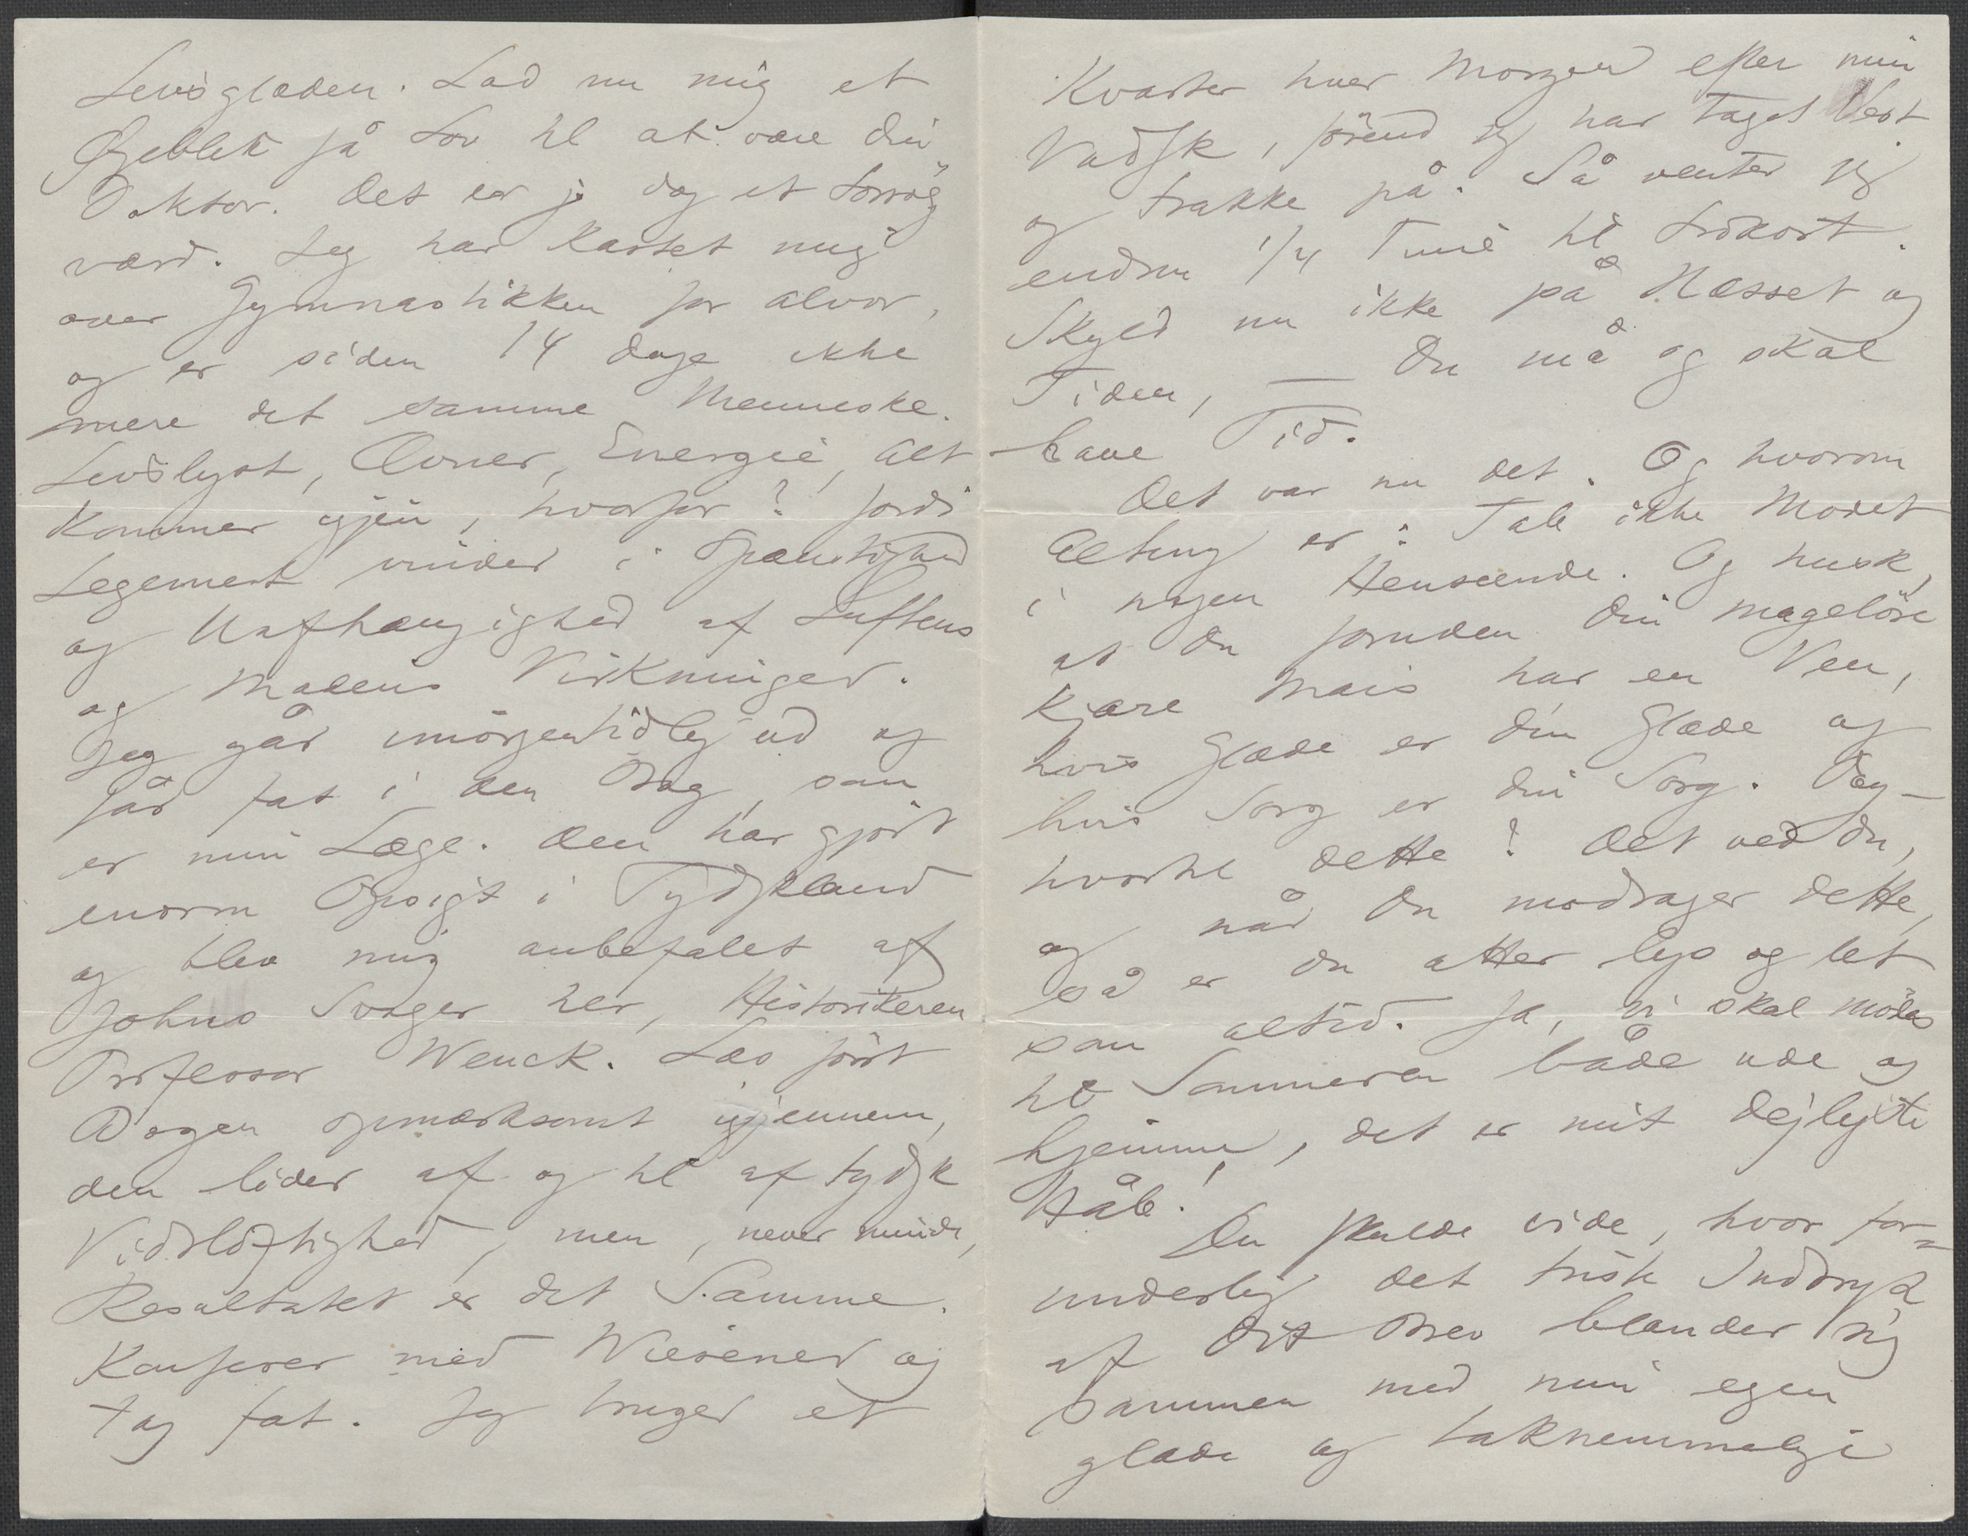 Livsglæden. Lad nu mig et
Øjeblik få Lov til at være din
Doktor. Det er jo dog et Forsøg
værd. Jeg har kastet mig
over Gymnastikken for Alvor,
og er siden 14 Dage ikke
mere det samme Menneske.
Livslyst, Ævner, Energie, Alt
kommer igjen, hvorfor? Fordi
Legemet vinder i Spænstighed
og Uafhængighed af Luftens
og Madens Virkninger.
Jeg går imorgentidlig ud og
får fat i den Bog, som
er min Læge. Den har gjört
enorm Opsigt i Tydskland
og blev mig anbefalet af
Johns Svoger her, Historikeren
Professor Wenck. Læs först
Bogen opmærksomt igjennem,
den lider af og til af tydsk
Vidtlöftighed, men, never mind,
Resultatet er det Samme.
Konferer med Wiesener og
tag fat. Jeg bruger et
Kvarter hver Morgen efter min
Vadsk, förend jeg har taget Vest
og Frakke på. Så venter jeg
endnu 1/4 Time til Frokost.
Skyld nu ikke på Næsset og
Tiden, — Du må og skal
have Tid.
Det var nu det. Og hvorom
Alting er: Tab ikke Modet
i nogen Henseende. Og husk,
at Du foruden din mageløse
kjære Mais har en Ven,
hvis Glæde er din Glæde og
hvis Sorg er din Sorg. Dog —
hvortil dette? Det ved Du,
og når Du modtager dette,
så er Du atter lys og let
som altid. Ja, vi skal mödes
til Sommeren både ude og
hjemme, det er mit dejligste
Håb!
Du skulde vide, hvor for=
underlig det trist Indtryk
af dit Brev blander sig
sammen med min egen
glade og taknemmelige